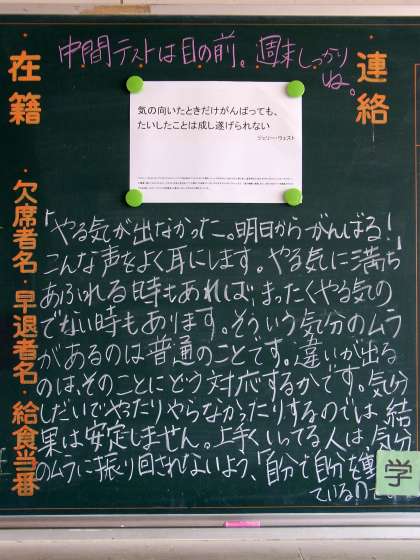 中間テストは目の前。週末しっかり
ね。
連絡
在籍
・欠席者名・早退者名・給食当番
気の向いたときだけがんばっても、
たいしたことは成し遂げられない
ジェリー・ウェスト
「やる気が出なかった。明日からがんばる!」
こんな声をよく耳にします。やる気に満ち
あふれる時もあれば、まったくやる気の
でない時もあります。そういう気分のムラ
があるのは普通のことです。違いが出る
のは、そのことにどう対応するかです。気分
しだいでやったりやらなかったりするのでは、結
果は安定しません。上手くいってる人は、気分
のムラに振り回されないよう、「自分で自分を
ているので
学